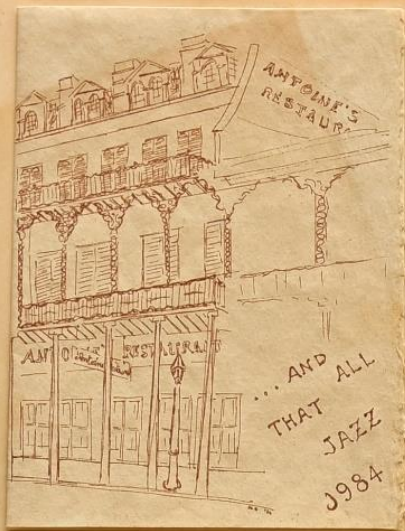 ANTOINE'S
RESTAUR
ANTOINE'S RESTAURANT
... AND
ALL
THAT
JAZZ
1984